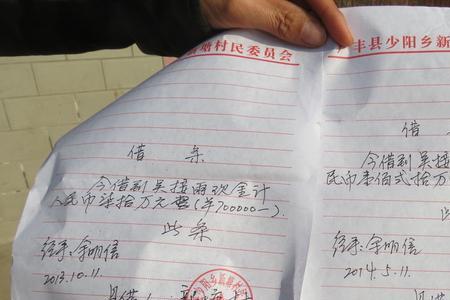 塘村民委员会
借 条
今借到吴接雨现金计
人民币柒拾万元整(¥700000—).
此条
经手:余明信
2013.10.11.
具借:
丰县少阳乡新
借
今借到吴接
民币壹佰弍拾万
经手:余明信
2014.5.11.